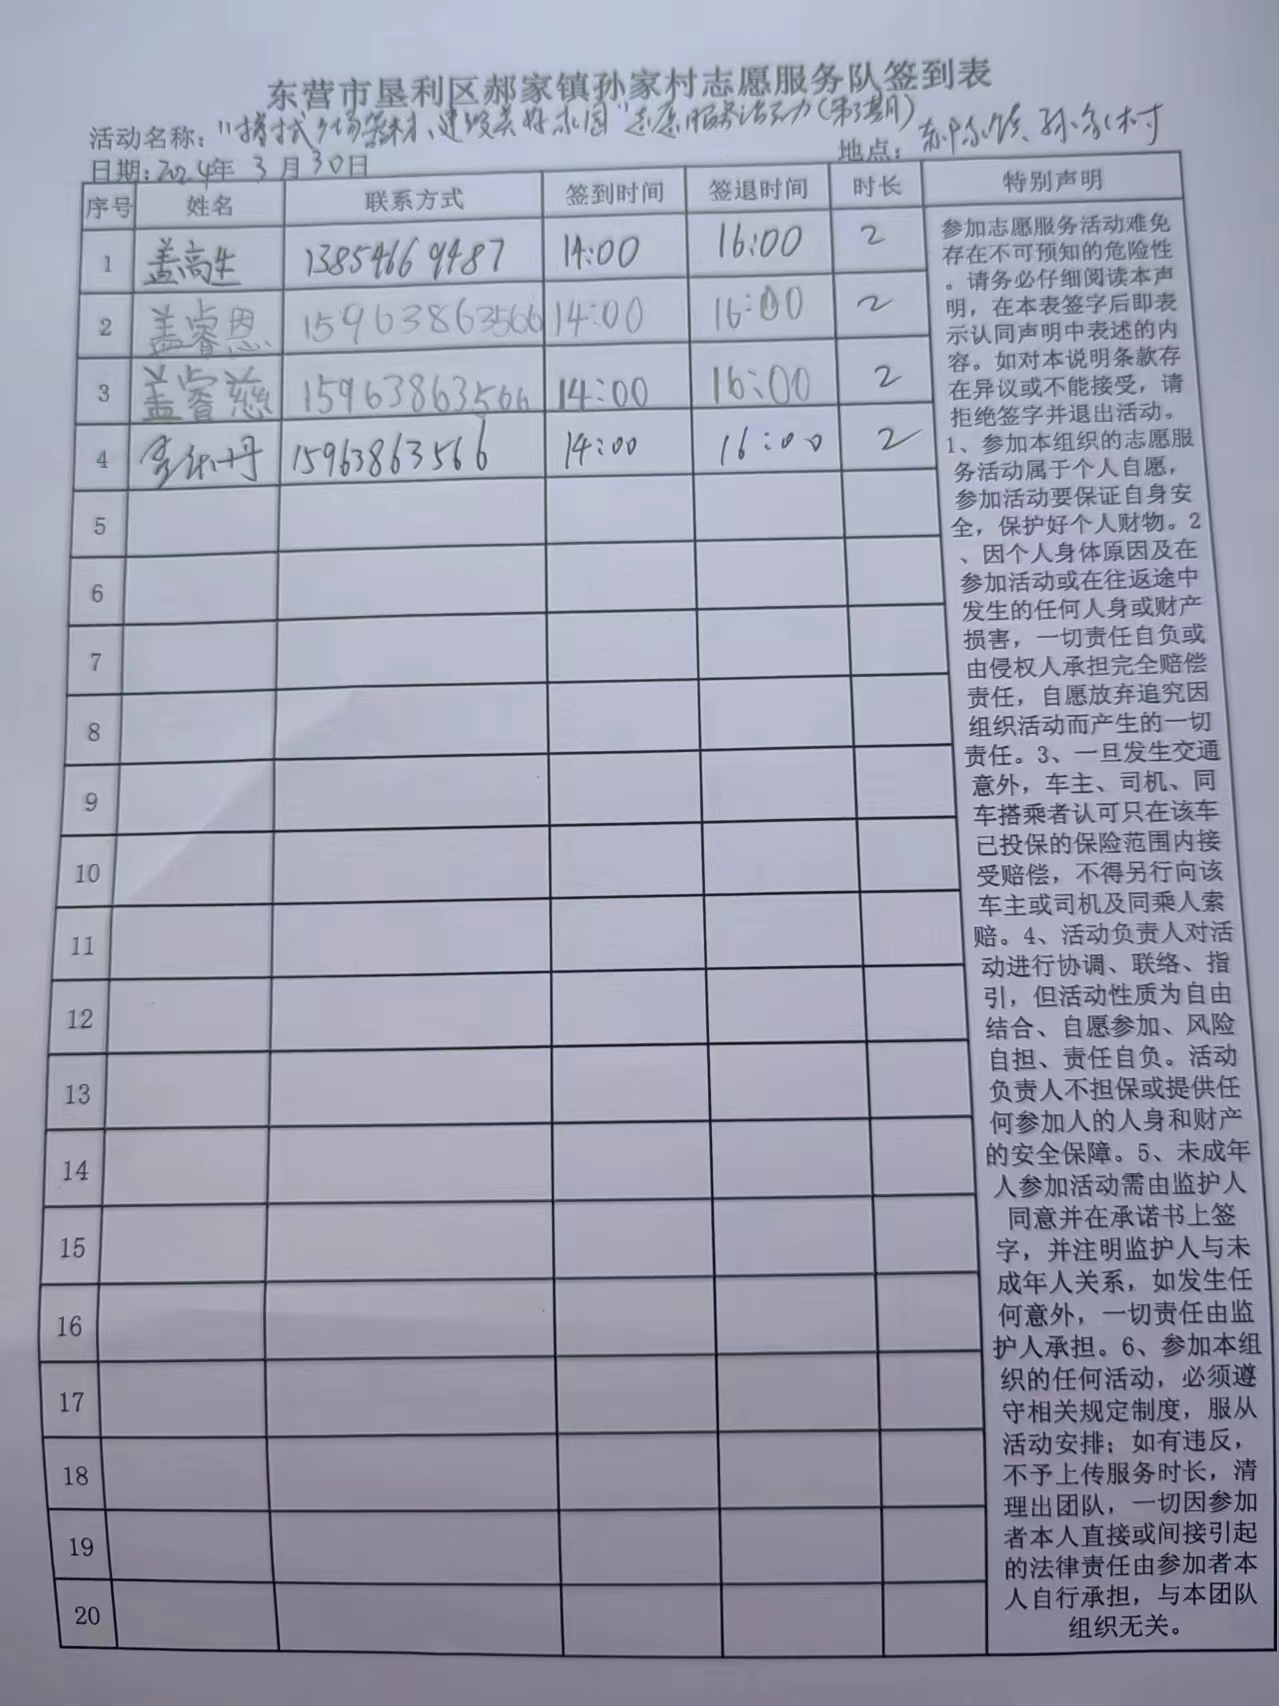 东营市垦利区郝家镇孙家村志愿服务队签到表
活动名称："擦拭 健身器材、建设美好家园"志愿服务活动(第3期)
地点：郝家镇孙家村
日期:2024年 3 月30日
序号 姓名 联系方式 签到时间 签退时间 时长 特别声明
1 盖高生 13854669487 14:00 16:00 2
2 盖睿恩 15963863566 14:00 16:00 2
3 盖睿慈 15963863566 14:00 16:00 2
4 丹 15963863566 14:00 16:00 2
5
6
7
8
9
10
11
12
13
14
15
16
17
18
19
20
参加志愿服务活动难免
存在不可预知的危险性
。请务必仔细阅读本声
明，在本表签字后即表
示认同声明中表述的内
容。如对本说明条款存
在异议或不能接受，请
拒绝签字并退出活动。
1、参加本组织的志愿服
务活动属于个人自愿，
参加活动要保证自身安
全，保护好个人财物。2
、因个人身体原因及在
参加活动或在往返途中
发生的任何人身或财产
损害，一切责任自负或
由侵权人承担完全赔偿
责任，自愿放弃追究因
组织活动而产生的一切
责任。3、一旦发生交通
意外，车主、司机、同
车搭乘者认可只在该车
已投保的保险范围内接
受赔偿，不得另行向该
车主或司机及同乘人索
赔。4、活动负责人对活
动进行协调、联络、指
引，但活动性质为自由
结合、自愿参加、风险
自担、责任自负。活动
负责人不担保或提供任
何参加人的人身和财产
的安全保障。5、未成年
人参加活动需由监护人
同意并在承诺书上签
字，并注明监护人与未
成年人关系，如发生任
何意外，一切责任由监
护人承担。6、参加本组
织的任何活动，必须遵
守相关规定制度，服从
活动安排；如有违反，
不予上传服务时长，清
理出团队，一切因参加
者本人直接或间接引起
的法律责任由参加者本
人自行承担，与本团队
组织无关。